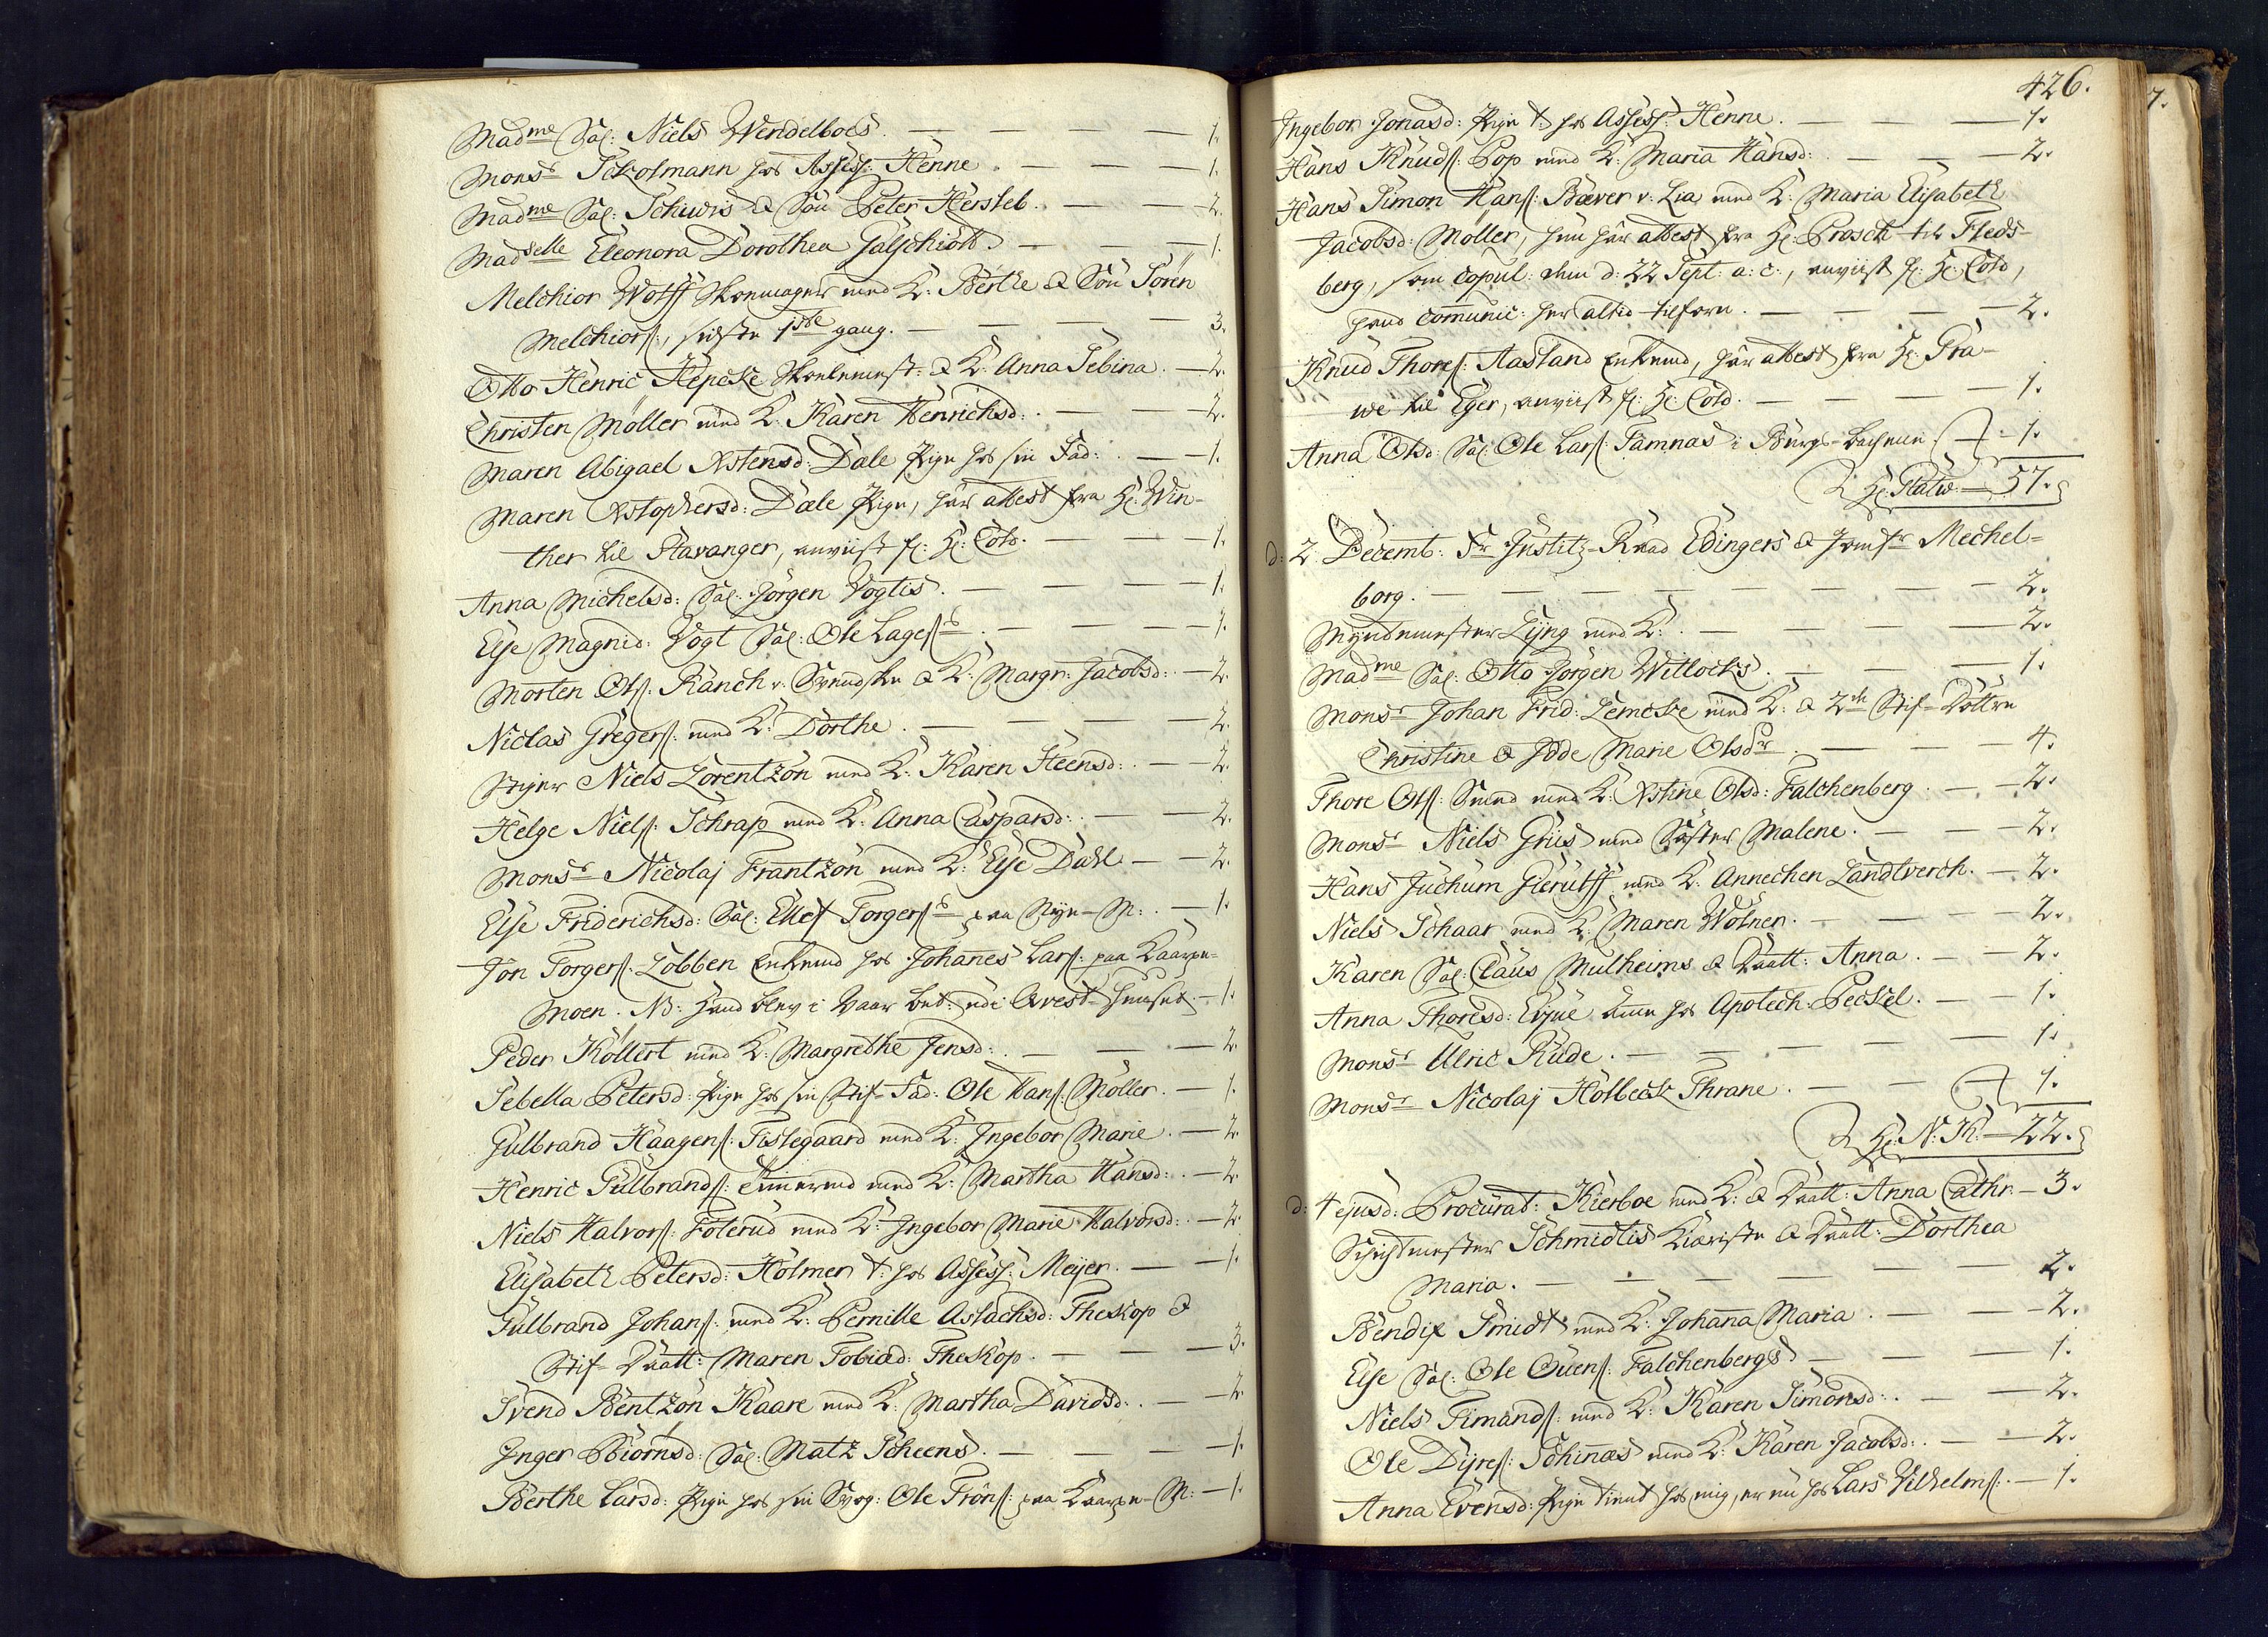 Madme Sal: Niels Wendelboes. — — — — 1.
Monsr Sckolmann hos Assess: Henne. — — — 1.
Madme Sal: Schiwis & Sön Peter Hersleb. — — 2.
Madselle Eleonora Dorothea Galschiött. — — — 1.
Melchior Wolff Skoemager med K: Berthe & Sön Sören
Melchiors:, sidste 1ste gang. — — — — 3.
Otto Henric Hepcke Skolemest: & K: Anna Sebina. — 2.
Christen Möller med K: Karen Henrichsd: . — — 2.
Maren Abigael Xstensd: Dale Pige hos sin Fad: . — — 1.
Maren Xstophersd: Dale Pige, har attest fra Hr: Win-
ther til Stavanger, anviist f: Hr: Cold. — — — 1.
Anna Michelsd: Sal: Jörgen Vogtis. — — — 1.
Else Magnid: Vogt Sal: Ole Lages: . — — — 1.
Morten Ols: Ranch v. Svendske & K: Margr: Jacobsd: . — 2.
Niclas Gregers: med K: Dorthe. — — — — 2.
Stiger Niels Lorentzön med K: Karen Steensd: . — — 2.
Helge Niels: Schrap med K: Anna Caspersd: . — — 2.
Monsr Nicolaj Frantzön med K: Else Dahl — — 2.
Else Friderichsd: Sal: Ellef Torgers: paa Nye-M: . — 1.
Jon Torgers: Lobben Enkemd hos Johanes Lars: paa Kaarpe-
Moen. NB: Hand blev i Vaar bet: udi Arrest-Huuset. — 1.
Peder Köllert med K: Margrethe Jensd: . — — — 2.
Sebella Petersd: Pige hos sin Stif-Fad: Ole Hans: Möller. — 1.
Gulbrand Haagens: Fislegaard med K: Ingebor Marie. — 2.
Henric Gulbrands: Timermd med K: Martha Hansd: . — 2.
Niels Halvors: Foterud med K: Ingebor Marie Halvorsd: . — 2.
Elisabeth Petersd: Holmer t: hos Assess: Meyer. — — 1.
Gulbrand Johans: med K: Pernille Aslachsd: Theskop &
Stif-Daatt: Maren Tobiæd: Theskop. — — — 3.
Svend Bentzön Kaare med K: Martha Davidsd: . — — 2.
Inger Biörnsd: Sal: Matz Scheens. — — — — 1.
Berthe Larsd: Pige hos sin Svog: Ole Tröns: paa Kaarpe-M: — 1.
426.
7.
Ingebor Jonasd: Pige t: hos Assess: Henne. — — — 1.
Hans Knuds: Pop med K: Maria Hansd: . — — — 2.
Hans Simon Hans: Bæver v: Lia, med K: Maria Elisabeth
Jacobsd: Möller, hun har attest fra Hr: Brosch til Fleds-
berg, som copul: dem d: 22 Sept: a: c:, anviist f: Hr: Cold,
hand comunic: her altid tilforn. — — — — 2.
Knud Thores: Aasland Enkemd, har attest fra Hr: Gra-
we til Eger, anviist f: Hr: Cold. — — — — 1.
Anna Olsd: Sal: Ole Lars: Tamnas i Bergs-bachene — 1.
Hr: Platw: — 57.
d: 2 Decemb: Fr Justitz-Raad Edingers & Jomfr Mechel-
borg. — — — — — — — — 2.
Myndtmester Lyng med K: . — — — — 2.
Madme Sal: Otto Jörgen Witlocks. — — — 1.
Monsr Johan Frid: Lemcke med K: & 2de Stif-Döttre
Christine & Jöde Marie Olsdr . — — — 4.
Thore Ols: Smed med K: Xstine Olsd: Falchenberg. — — 2.
Monsr Niels Grüs med Söster Malene. — — — 2.
Hans Juchum Gierulff med K: Annechen Landtverch. — 2.
Niels Schaar med K: Maren Wolner. — — — 2.
Karen Sal: Claus Mulheims & Daatt: Anna. — — 2.
Anna Thoresd: Evjue Amme hos Apotech: Peckel. — — 1.
Monsr Ulric Rude. — — — — — 1.
Monsr Nicolaj Holbeck Thrane. — — — 1.
Hr: N: K: — 22.
d: 4 ejusd: Procurat: Kierboe med K: & Daatt: Anna Cathr: — 3.
Schichtmester Schmidtis Kiæriste & Daatt: Dorthea
Maria. — — — — — — 2.
Bendix Smidt med K: Johanna Maria. — — — 2.
Else Sal: Ole Ouens: Falchenbergs. — — — 1.
Niels Timands: med K: Karen Simonsd: . — — 2.
Ole Dyres: Schinæs med K: Karen Jacobsd: . — — 2.
Anna Evensd: Pige tient hos mig, er nu hos Lars Vilhelms: . — 1.